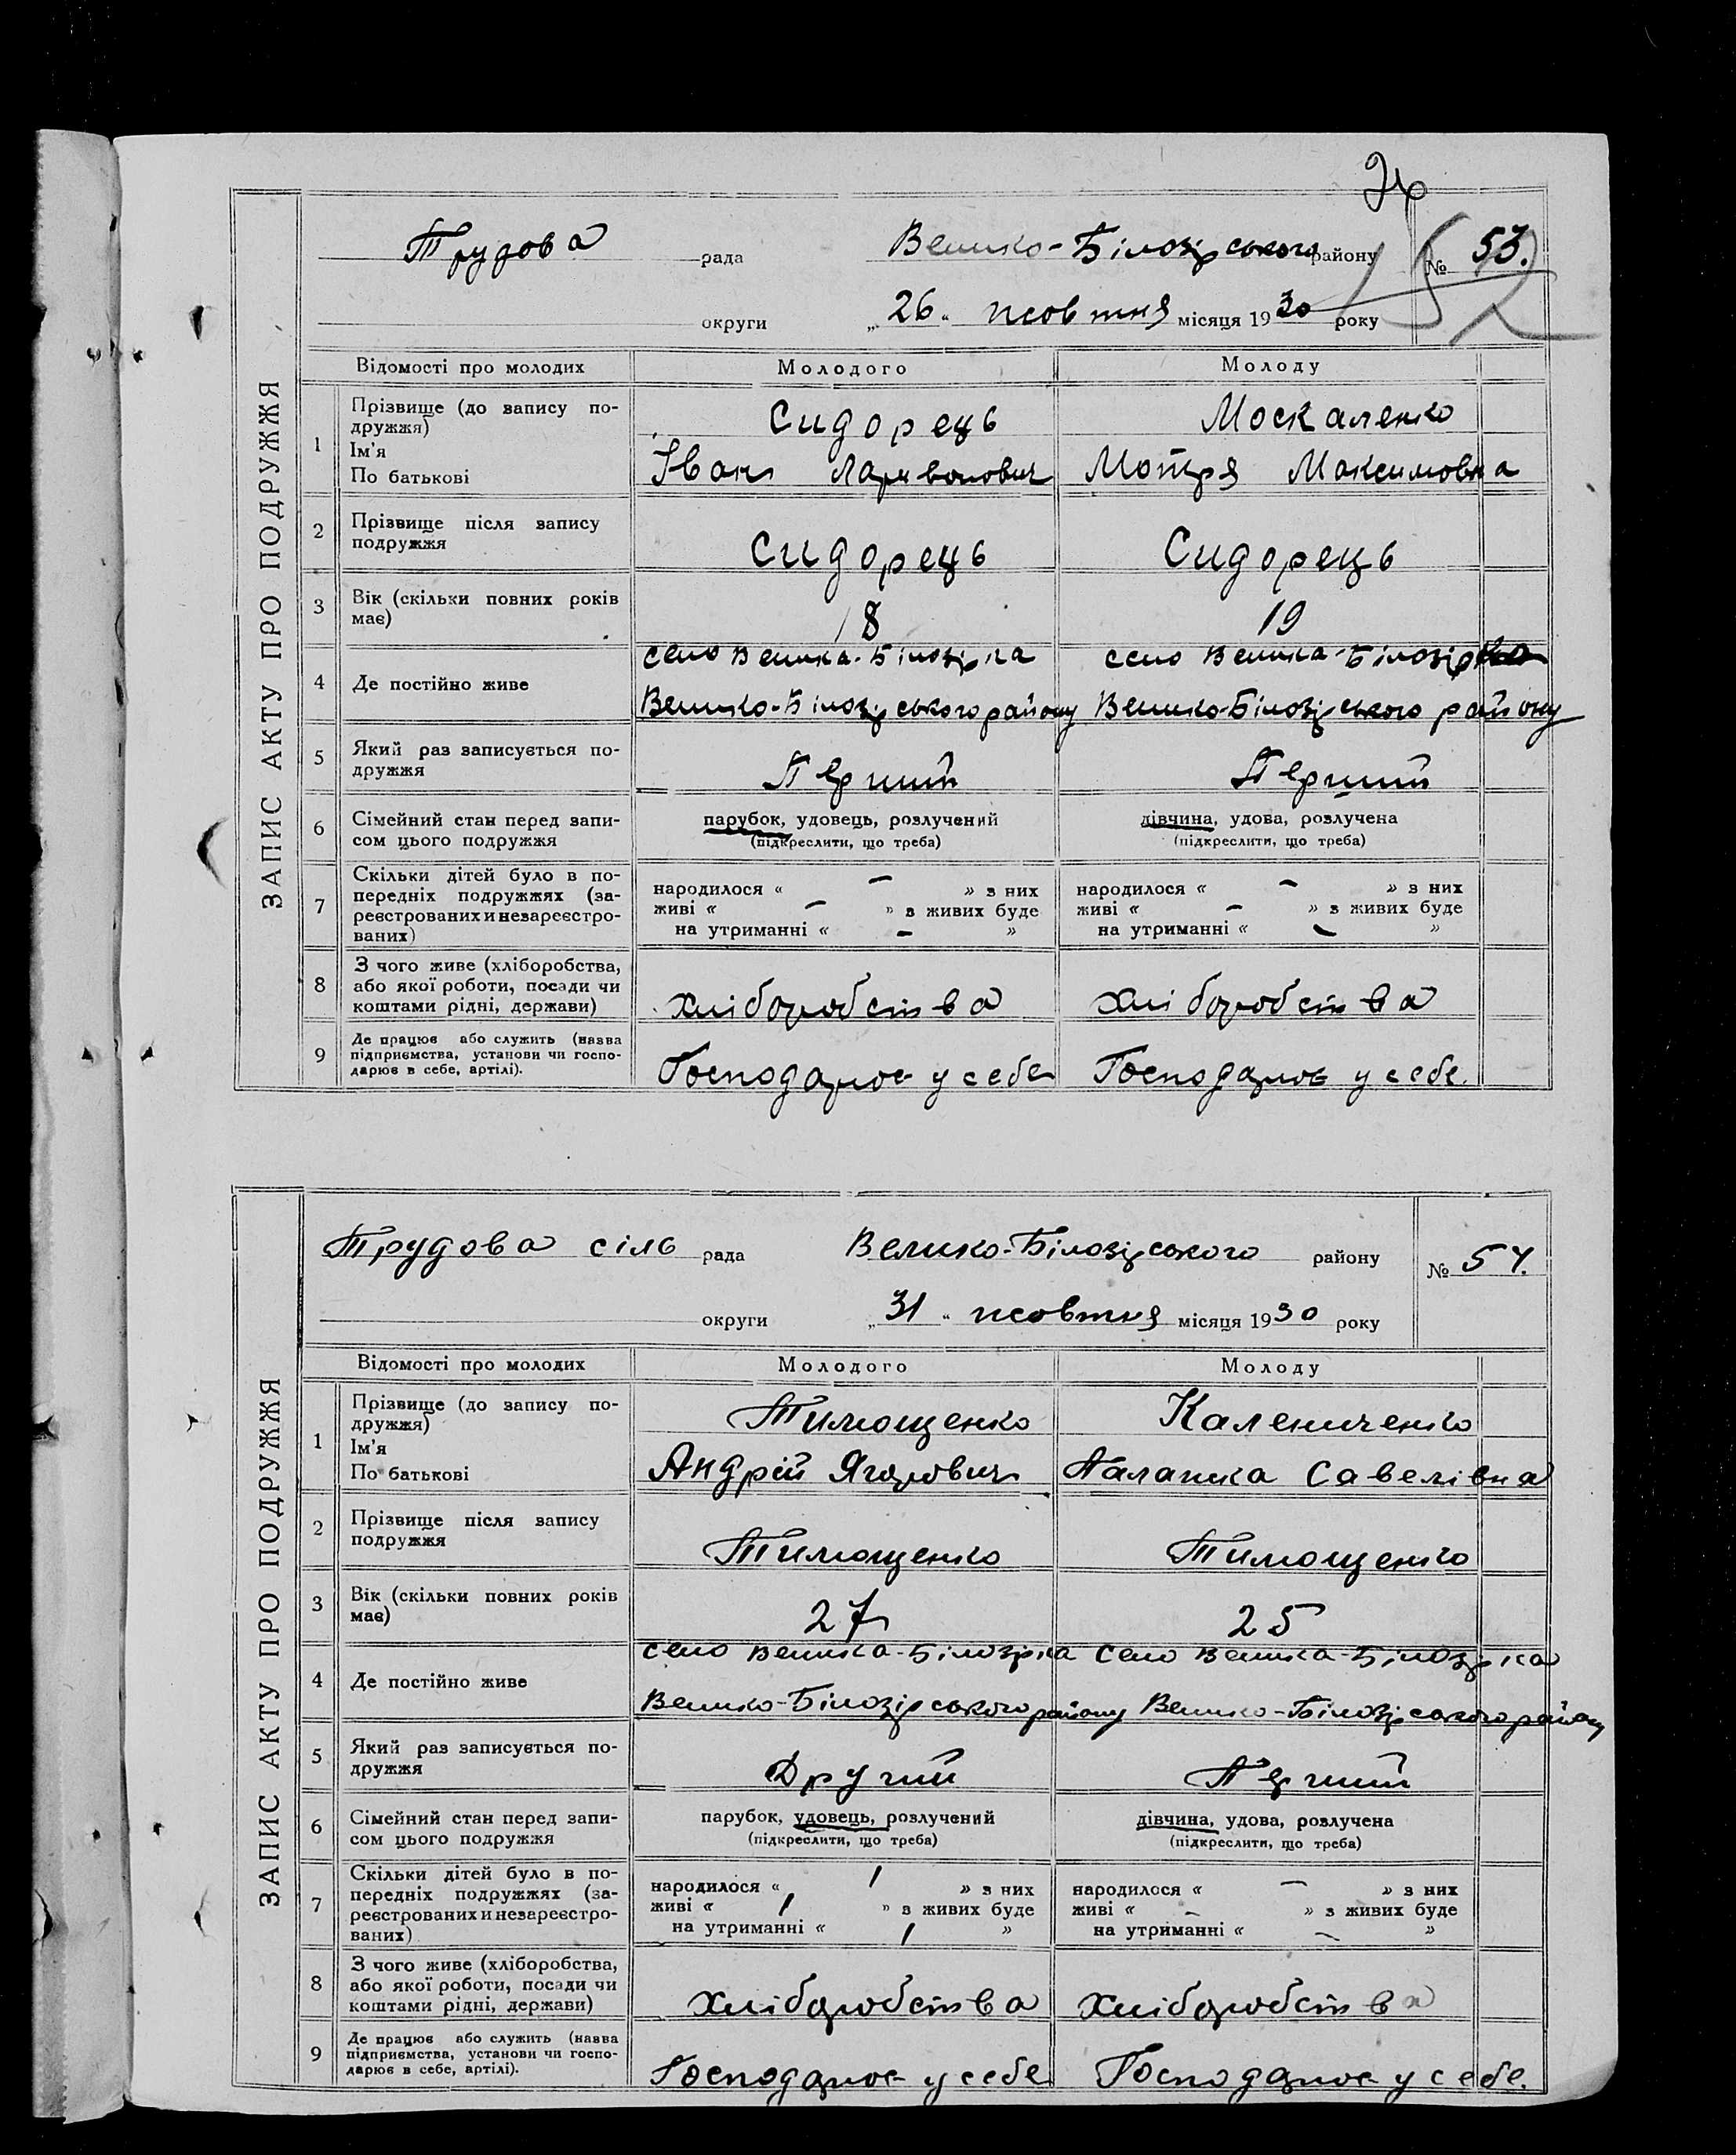 Трудова рада Велико-Білозірського району № 53.
округи „ 26 " жовтня місяця 1930 року
ЗАПИС АКТУ ПРО ПОДРУЖЖЯ
Відомості про молодих Молодого Молоду
1 Прізвище (до запису по-
дружжя) Сидорець Москаленко
Ім'я
По батькові Іван Ларивонович Мотря Максимовна
2 Прізвище після запису
подружжя Сидорець Сидорець
3 Вік (скільки повних років
має) 18 19
4 Де постійно живе село Велика-Білозірка село Велика-Білозірка
Велико-Білозірського району Велико-Білозірського району
5 Який раз записується по-
дружжя Перший Перший
6 Сімейний стан перед запи-
сом цього подружжя парубок, удовець, розлучений дівчина, удова, розлучена
(підкреслити, що треба) (підкреслити, що треба)
7 Скільки дітей було в по-
передніх подружжях (за-
реєстрованих и незареєстро-
ваних) народилося « — » з них народилося « — » з них
живі « — » з живих буде живі « — » з живих буде
на утриманні « — » на утриманні « — »
8 З чого живе (хліборобства,
або якої роботи, посади чи
коштами рідні, держави) хліборобства хліборобства
9 Де працює або служить (назва
підприємства, установи чи госпо-
дарює в себе, артілі). Господарює у себе Господарює у себе.
Трудова сіль рада Велико-Білозірського району № 54.
округи „ 31 " жовтня місяця 1930 року
ЗАПИС АКТУ ПРО ПОДРУЖЖЯ
Відомості про молодих Молодого Молоду
1 Прізвище (до запису по-
дружжя) Тимощенко Калениченко
Ім'я
По батькові Андрій Ягорович Палашка Савелівна
2 Прізвище після запису
подружжя Тимощенко Тимощенко
3 Вік (скільки повних років
має) 27 25
4 Де постійно живе село Велика-Білозірка село Велика-Білозірка
Велико-Білозірського району Велико-Білозірського району
5 Який раз записується по-
дружжя Другий Перший
6 Сімейний стан перед запи-
сом цього подружжя парубок, удовець, розлучений дівчина, удова, розлучена
(підкреслити, що треба) (підкреслити, що треба)
7 Скільки дітей було в по-
передніх подружжях (за-
реєстрованих и незареєстро-
ваних) народилося « 1 » з них народилося « — » з них
живі « 1 » з живих буде живі « — » з живих буде
на утриманні « 1 » на утриманні « — »
8 З чого живе (хліборобства,
або якої роботи, посади чи
коштами рідні, держави) хліборобства хліборобства
9 Де працює або служить (назва
підприємства, установи чи госпо-
дарює в себе, артілі). Господарює у себе Господарює у себе.